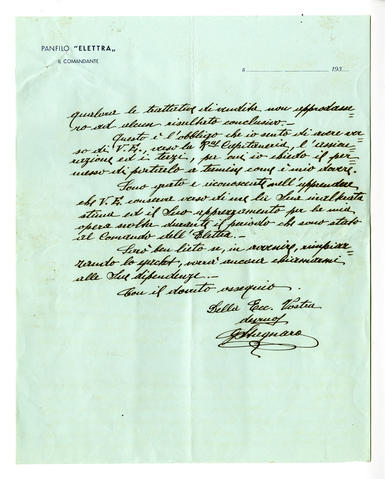 PANFILO "ELETTRA„
IL COMANDANTE
193
qualora le trattative di vendita non approdasse=
ro ad alcun risultato conclusivo.—
Questo è l'obbligo che io sento di avere ver=
so di V.E., verso la R. Capitaneria, l'assicu=
razione ed i terzi, per cui io chiedo il per=
messo di portarlo a termine come è mio dovere.
Sono grato e riconoscente nell'apprendere
che V.E. conserva verso di me la Sua inalterata
stima ed il Suo apprezzamento per la mia
opera svolta durante il periodo che sono stato
al Comando dell'Elettra.
Sarò ben lieto se, in avvenire, rimpiaz=
zando lo yacht, vorrà ancora chiamarmi
alle Sue dipendenze.—
Con il dovuto ossequio.
Della Ecc. Vostra
devmo